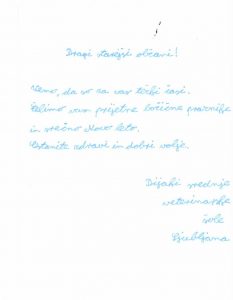 Dragi starejši občani!
Vemo, da so za vas težki časi.
Želimo vam prijetne božične praznike
in srečno Novo leto.
Ostanite zdravi in dobri volje.
Dijaki srednje
veterinarske
šole
Ljubljana